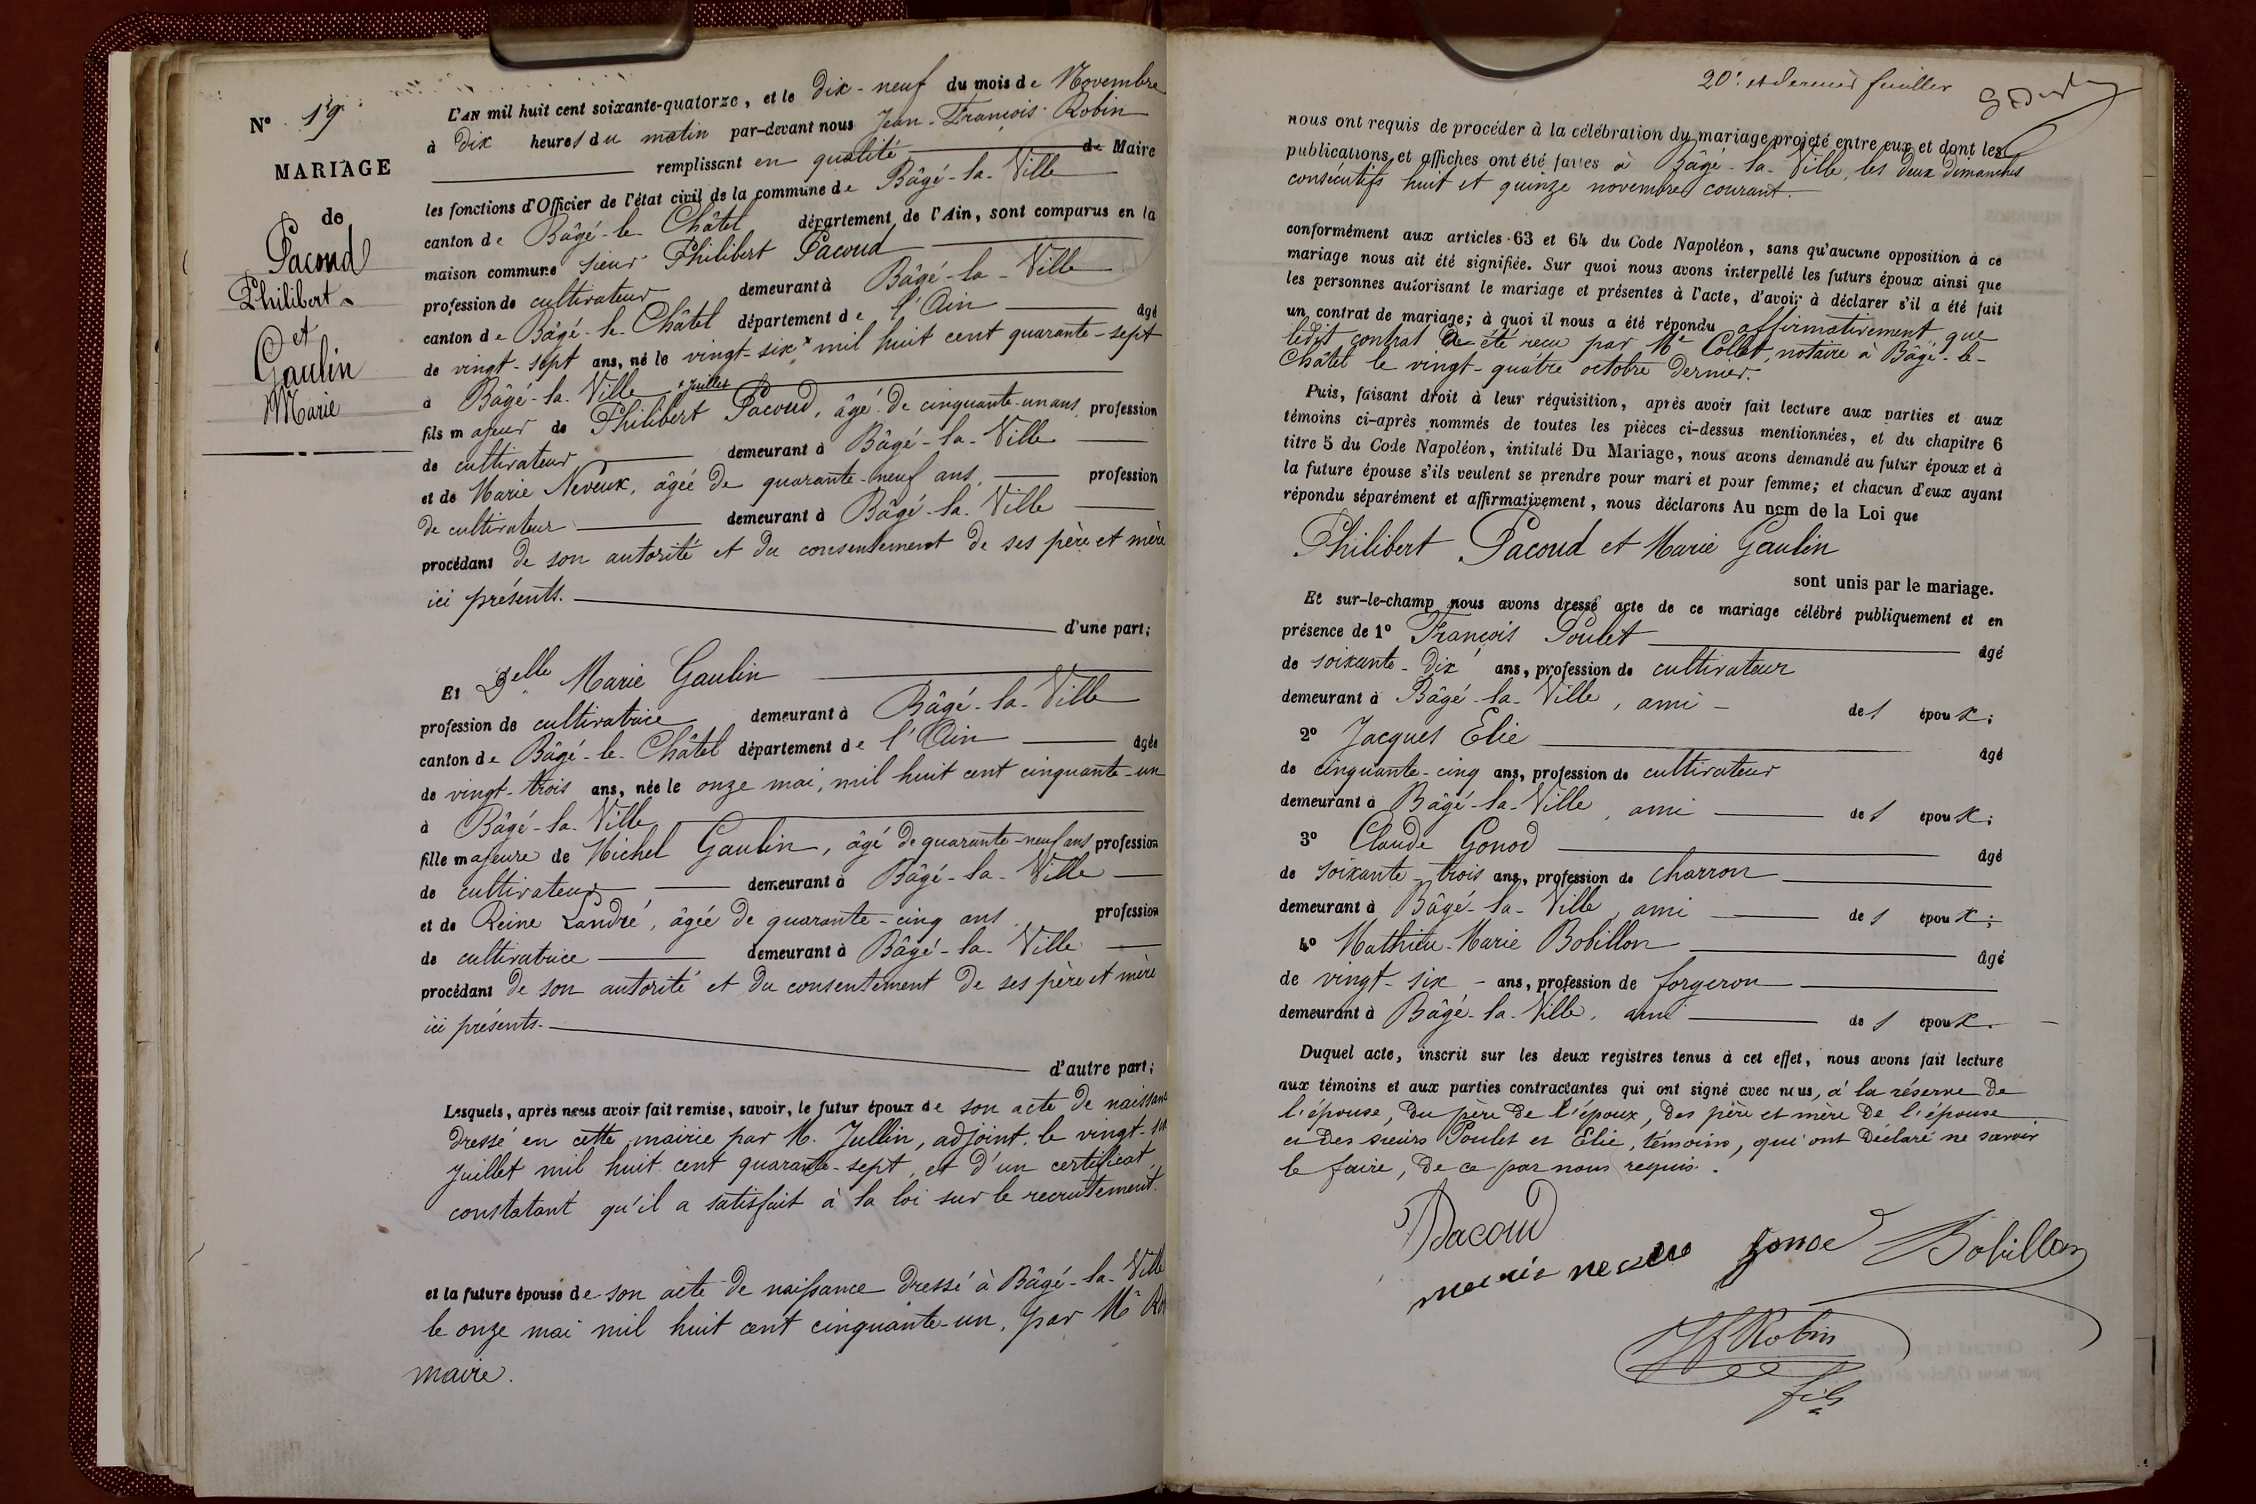 Nº 19
MARIAGE
de
Pacoud
Philibert
et
Gaulin
Marie
L'AN mil huit cent soixante-quatorze, et le dix-neuf du mois de Novembre
à dix heures du matin par-devant nous Jean-François Robin
remplissant en qualité de Maire
les fonctions d'Officier de l'état civil de la commune de Bâgé-la-Ville
canton de Bâgé-le-Châtel département de l'Ain, sont comparus en la
maison commune sieur Philibert Pacoud
profession de cultivateur demeurant à Bâgé-la-Ville
canton de Bâgé-le-Châtel département de l'Ain âgé
de vingt-sept ans, né le vingt-six × mil huit cent quarante-sept
à Bâgé-la-Ville × juillet
fils majeur de Philibert Pacoud, âgé de cinquante-un ans profession
de cultivateur demeurant à Bâgé-la-Ville
et de Marie Neveux, âgée de quarante-neuf ans, profession
de cultivateur demeurant à Bâgé-la-Ville
procédant de son autorité et du consentement de ses père et mère
ici présents.
d'une part;
Et Delle Marie Gaulin
profession de cultivatrice demeurant à Bâgé-la-Ville
canton de Bâgé-le-Châtel département de l'Ain âgée
de vingt-trois ans, née le onze mai, mil huit cent cinquante-un
à Bâgé-la-Ville
fille majeure de Michel Gaulin, âgé de quarante-neuf ans profession
de cultivateur demeurant à Bâgé-la-Ville
et de Reine Landré, âgée de quarante-cinq ans profession
de cultivatrice demeurant à Bâgé-la-Ville
procédant de son autorité et du consentement de ses père et mère
ici présents.
d'autre part;
Lesquels, après nous avoir fait remise, savoir, le futur époux de son acte de naissance
dressé en cette mairie par M. Jullin, adjoint, le vingt-six
juillet mil huit cent quarante-sept, et d'un certificat
constatant qu'il a satisfait à la loi sur le recrutement.
et la future épouse de son acte de naissance dressé à Bâgé-la-Ville
le onze mai mil huit cent cinquante-un, par Mr
maire.
20e et dernier feuillet
nous ont requis de procéder à la célébration du mariage projeté entre eux et dont les
publications et affiches ont été faites à Bâgé-la-Ville, les deux dimanches
consécutifs huit et quinze novembre courant.
conformément aux articles 63 et 64 du Code Napoléon, sans qu'aucune opposition à ce
mariage nous ait été signifiée. Sur quoi nous avons interpellé les futurs époux ainsi que
les personnes autorisant le mariage et présentes à l'acte, d'avoir à déclarer s'il a été fait
un contrat de mariage; à quoi il nous a été répondu affirmativement, que
ledit contrat a été reçu par Me Collet, notaire à Bâgé-le-
Châtel le vingt-quatre octobre dernier.
Puis, faisant droit à leur réquisition, après avoir fait lecture aux parties et aux
témoins ci-après nommés de toutes les pièces ci-dessus mentionnées, et du chapitre 6
titre 5 du Code Napoléon, intitulé Du Mariage, nous avons demandé au futur époux et à
la future épouse s'ils veulent se prendre pour mari et pour femme; et chacun d'eux ayant
répondu séparément et affirmativement, nous déclarons Au nom de la Loi que
Philibert Pacoud et Marie Gaulin
sont unis par le mariage.
Et sur-le-champ nous avons dressé acte de ce mariage célébré publiquement et en
présence de 1º François Poulet âgé
de soixante-dix ans, profession de cultivateur
demeurant à Bâgé-la-Ville, ami des époux;
2º Jacques Elie âgé
de cinquante-cinq ans, profession de cultivateur
demeurant à Bâgé-la-Ville, ami des époux;
3º Claude Gonod âgé
de soixante-trois ans, profession de charron
demeurant à Bâgé-la-Ville, ami des époux;
4º Mathieu-Marie Bobillon âgé
de vingt-six ans, profession de forgeron
demeurant à Bâgé-la-Ville, ami des époux.
Duquel acte, inscrit sur les deux registres tenus à cet effet, nous avons fait lecture
aux témoins et aux parties contractantes qui ont signé avec nous, à la réserve de
l'épouse, du père de l'époux, des père et mère de l'épouse
et des sieurs Poulet et Elie, témoins, qui ont déclaré ne savoir
le faire, de ce par nous requis.
Pacoud
marie neveu gonod Bobillon
Jf Robin
fils